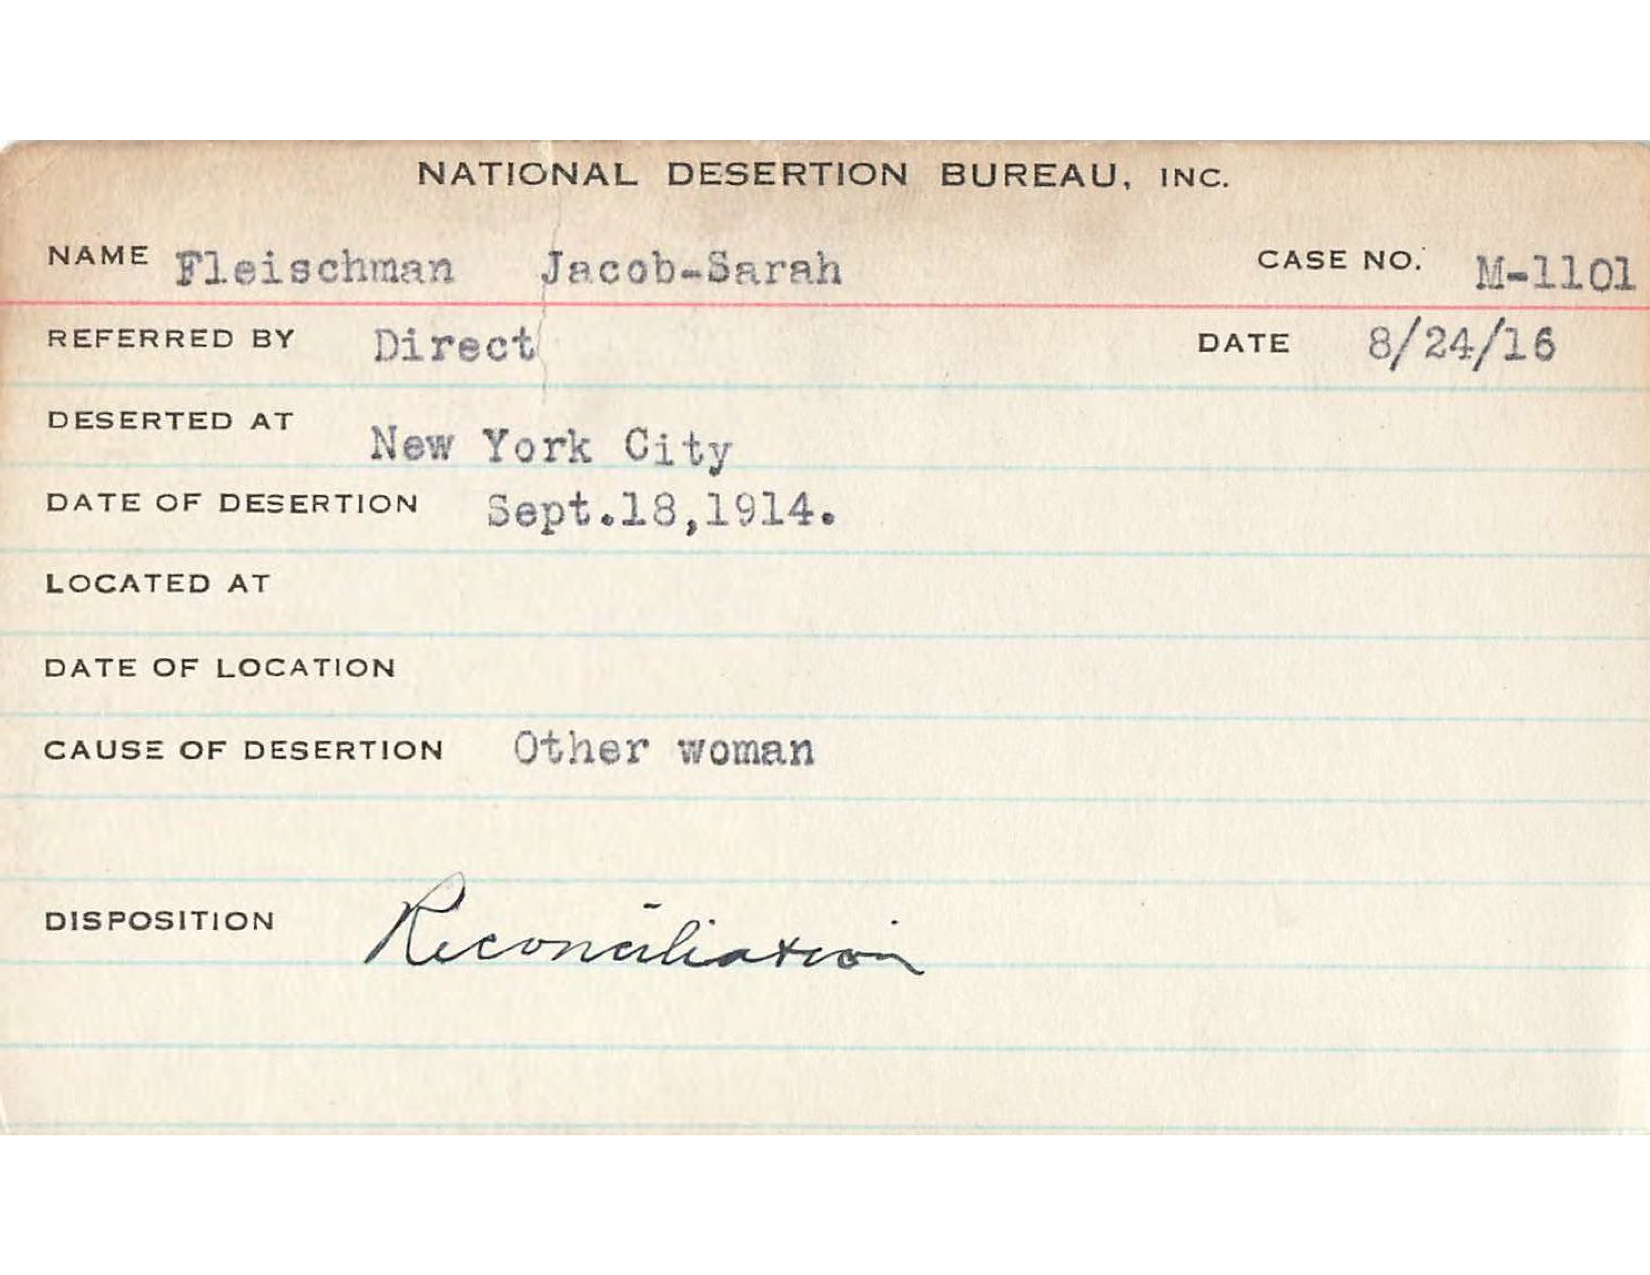 NATIONAL DESERTION BUREAU, INC.
NAME Fleischman Jacob-Sarah CASE NO. M-1101
REFERRED BY Direct DATE 8/24/16
DESERTED AT New York City
DATE OF DESERTION Sept.18,1914.
LOCATED AT
DATE OF LOCATION
CAUSE OF DESERTION Other woman
DISPOSITION Reconciliation